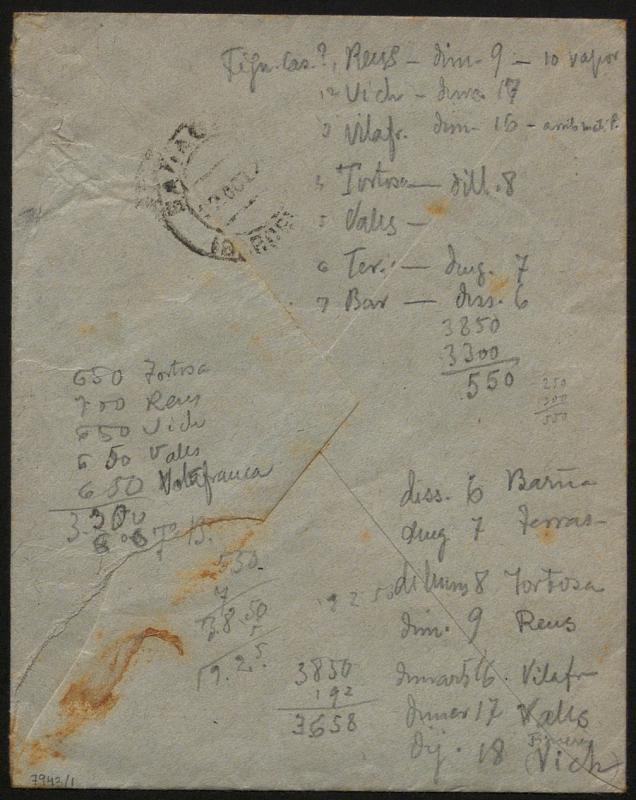 Reus - dim. 9 - 10 vapor
12 Vich - dime. 17
3 Vilafr. dim. 16 -
3 Tortosa - dill. 8
5 Valls -
6 Ter. - diug. 7
7 Bar - diss. 6
3850
3300
550
250
300
550
650 Tortosa
700 Reus
650 Vich
650 Valls
650 Vilafranca
3.300
550
7
38.50
5
19.25
192 50
3850
192
3658
diss. 6 Barña
diug 7 Terras-
dilluns 8 Tortosa
dim. 9 Reus
dimars 16. Vilafr
dimec 17 Valls
Dij. 18 (Vich)
7943/1